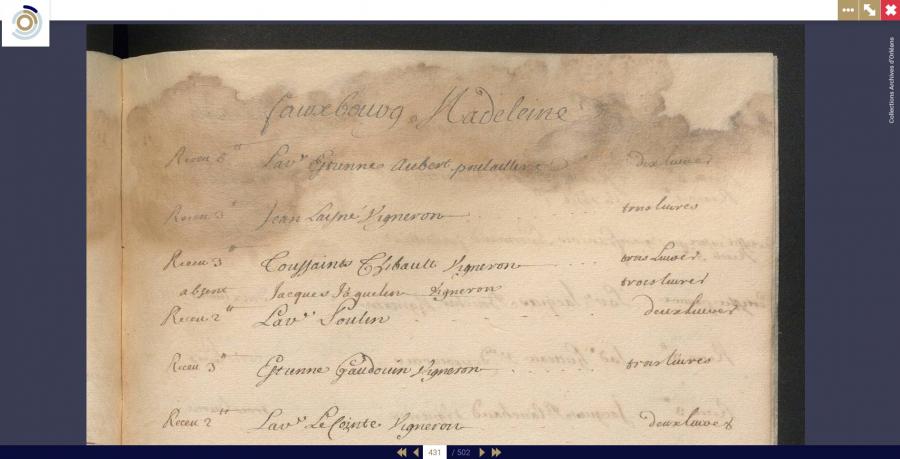 fauxbourg Madeleine
Receu 2ᵗᵗ Laᵛᵉ Estienne Aubert poulaillere deux livres
Receu 3ᵗᵗ Jean Laisné Vigneron trois livres
Receu 3ᵗᵗ Toussaints Thibault Vigneron trois livres
absent Jacques Jacquelin Vigneron trois livres
Receu 2ᵗᵗ Laᵛᵉ Soulin deux livres
Receu 3ᵗᵗ Estienne Gaudouin Vigneron trois livres
Receu 2ᵗᵗ Laᵛᵉ Le Cointe Vigneron deux livres
Collections Archives d'Orléans
431 / 502